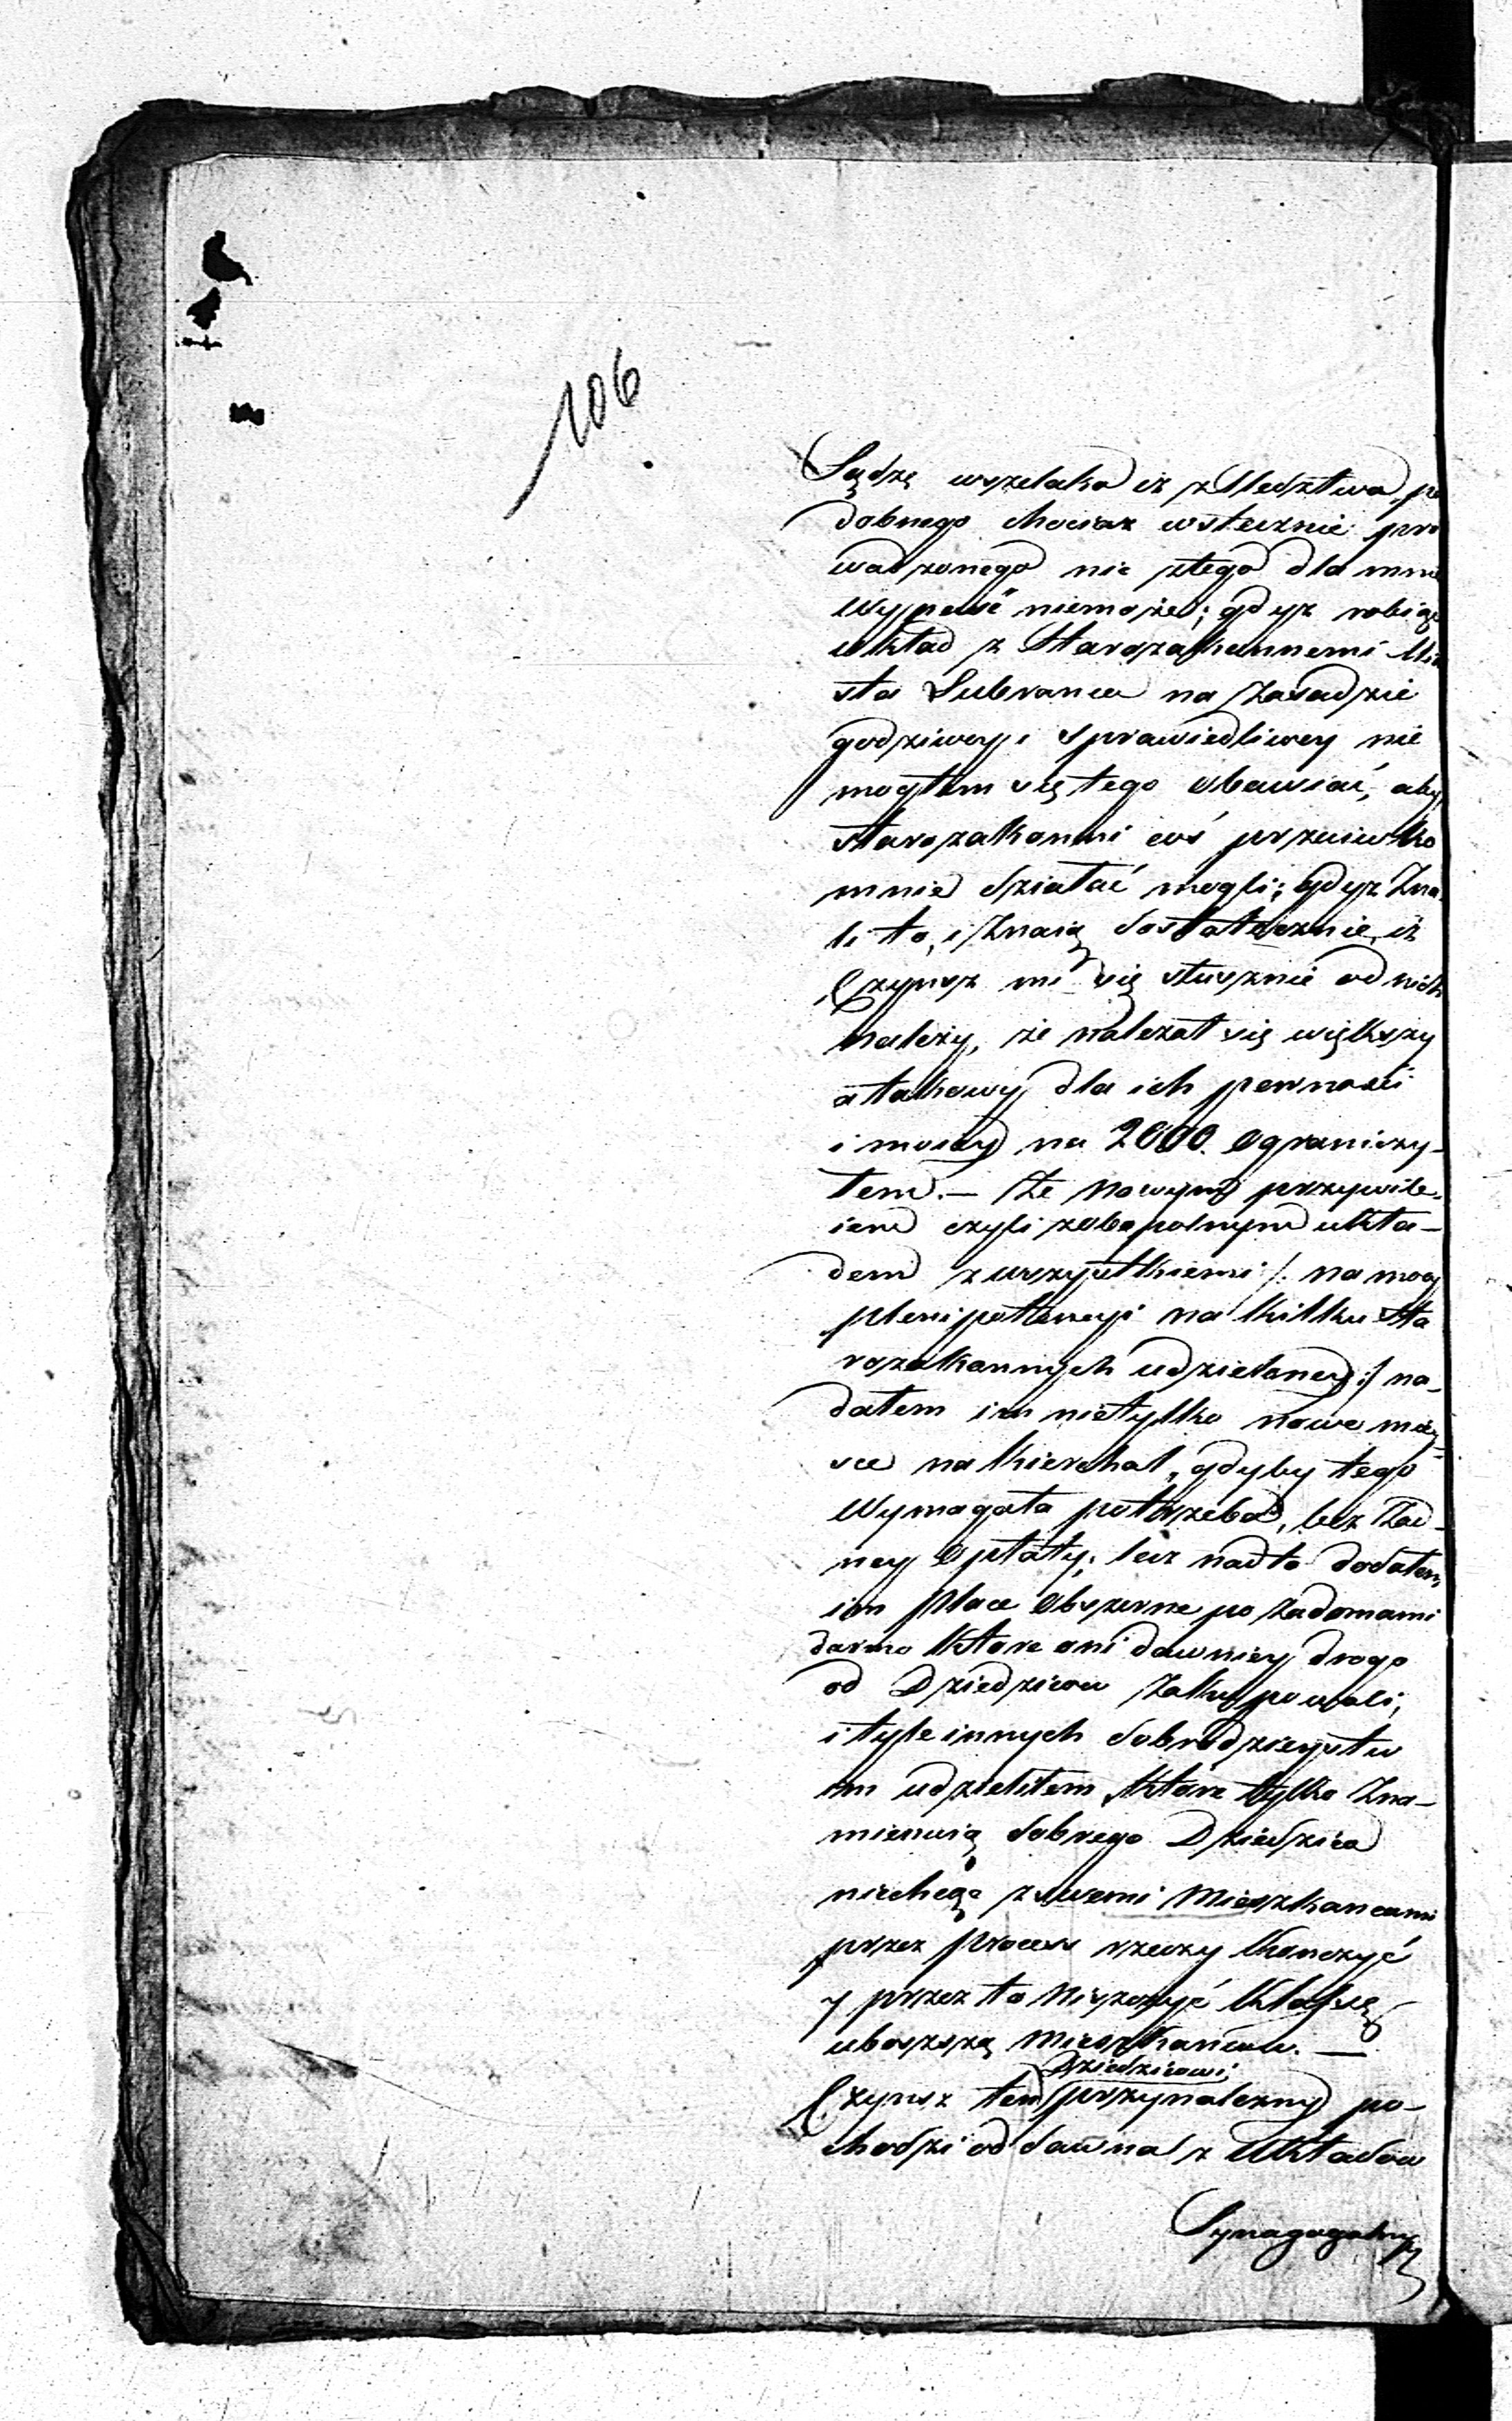 106
Sądzę wszelako iż z śledztwa po
dobnego chociaż wstecznie pro
wadzonego nic złego dla mnie
wypaść niemoże; gdyż robiąc
układ z Starozakonnemi Mia
sta Lubrańca na Zasadzie
godziwey i sprawiedliwey nie
mogłem się tego obawiać, aby
starozakonni coś przeciwko
mnie działać mogli; gdyż Zna
li to, i Znaią dostatecznie, iż
Czynsz mi się słusznie od nich
należy, że należał się większy
a takowy dla ich pewności
i moiey na 2000. ograniczy-
łem. — Że nowym przywile-
iem czyli zobopolnym ukła-
dem z wszystkiemi /: na mocy
plenipotencyi na kilku Sta
rozakonnych udzieloney :/ na-
dałem im nietylko nowe miey-
sce na kierchol, gdyby tego
wymagała potrzeba, bez żad-
ney opłaty; lecz nadto dodałem
im place obszerne po za domami
darmo które oni dawniey drogo
od Dziedziców Zakupowali,
i tyle innych dobrodzieystw
im udzieliłem które tylko Zna-
mienuią dobrego Dziedzica
niechcąc z swemi Mieszkańcami
przez process rzeczy kończyć
y przez to niszczyć klassę
uboższą mieszkańców. —
Dziedzicowi
Czynsz ten przynależny po-
chodzi od dawna z układów
Synagogalny